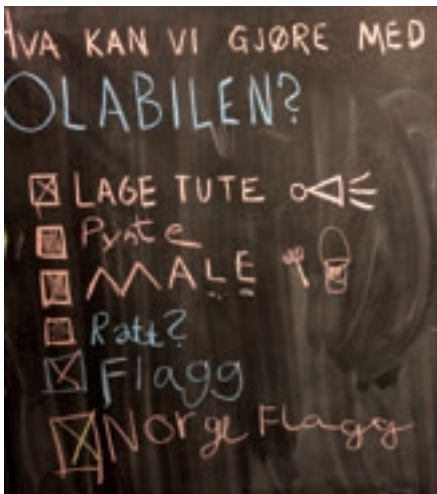 HVA KAN VI GJØRE MED
OLABILEN?
LAGE TUTE
Pynte
MALE
Ratt?
Flagg
Norge Flagg